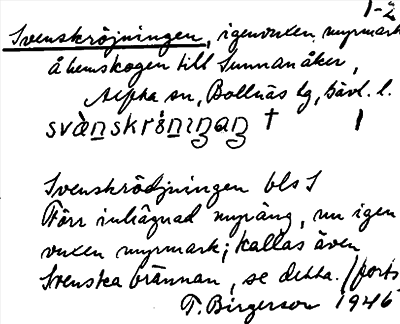 1-2
Svenskröjningen, igenvuxen myrmark
å hemskogen till Sunnanåker,
Alfta sn, Bollnäs tg, Gävl. l.
svànskrö̀niŋaŋ † 1
Svenskrödjningen bls S
Förr inhägnad myräng, nu igen
vuxen myrmark; kallas även
Svenska brännan, se detta. /forts
T. Birgerson 1946